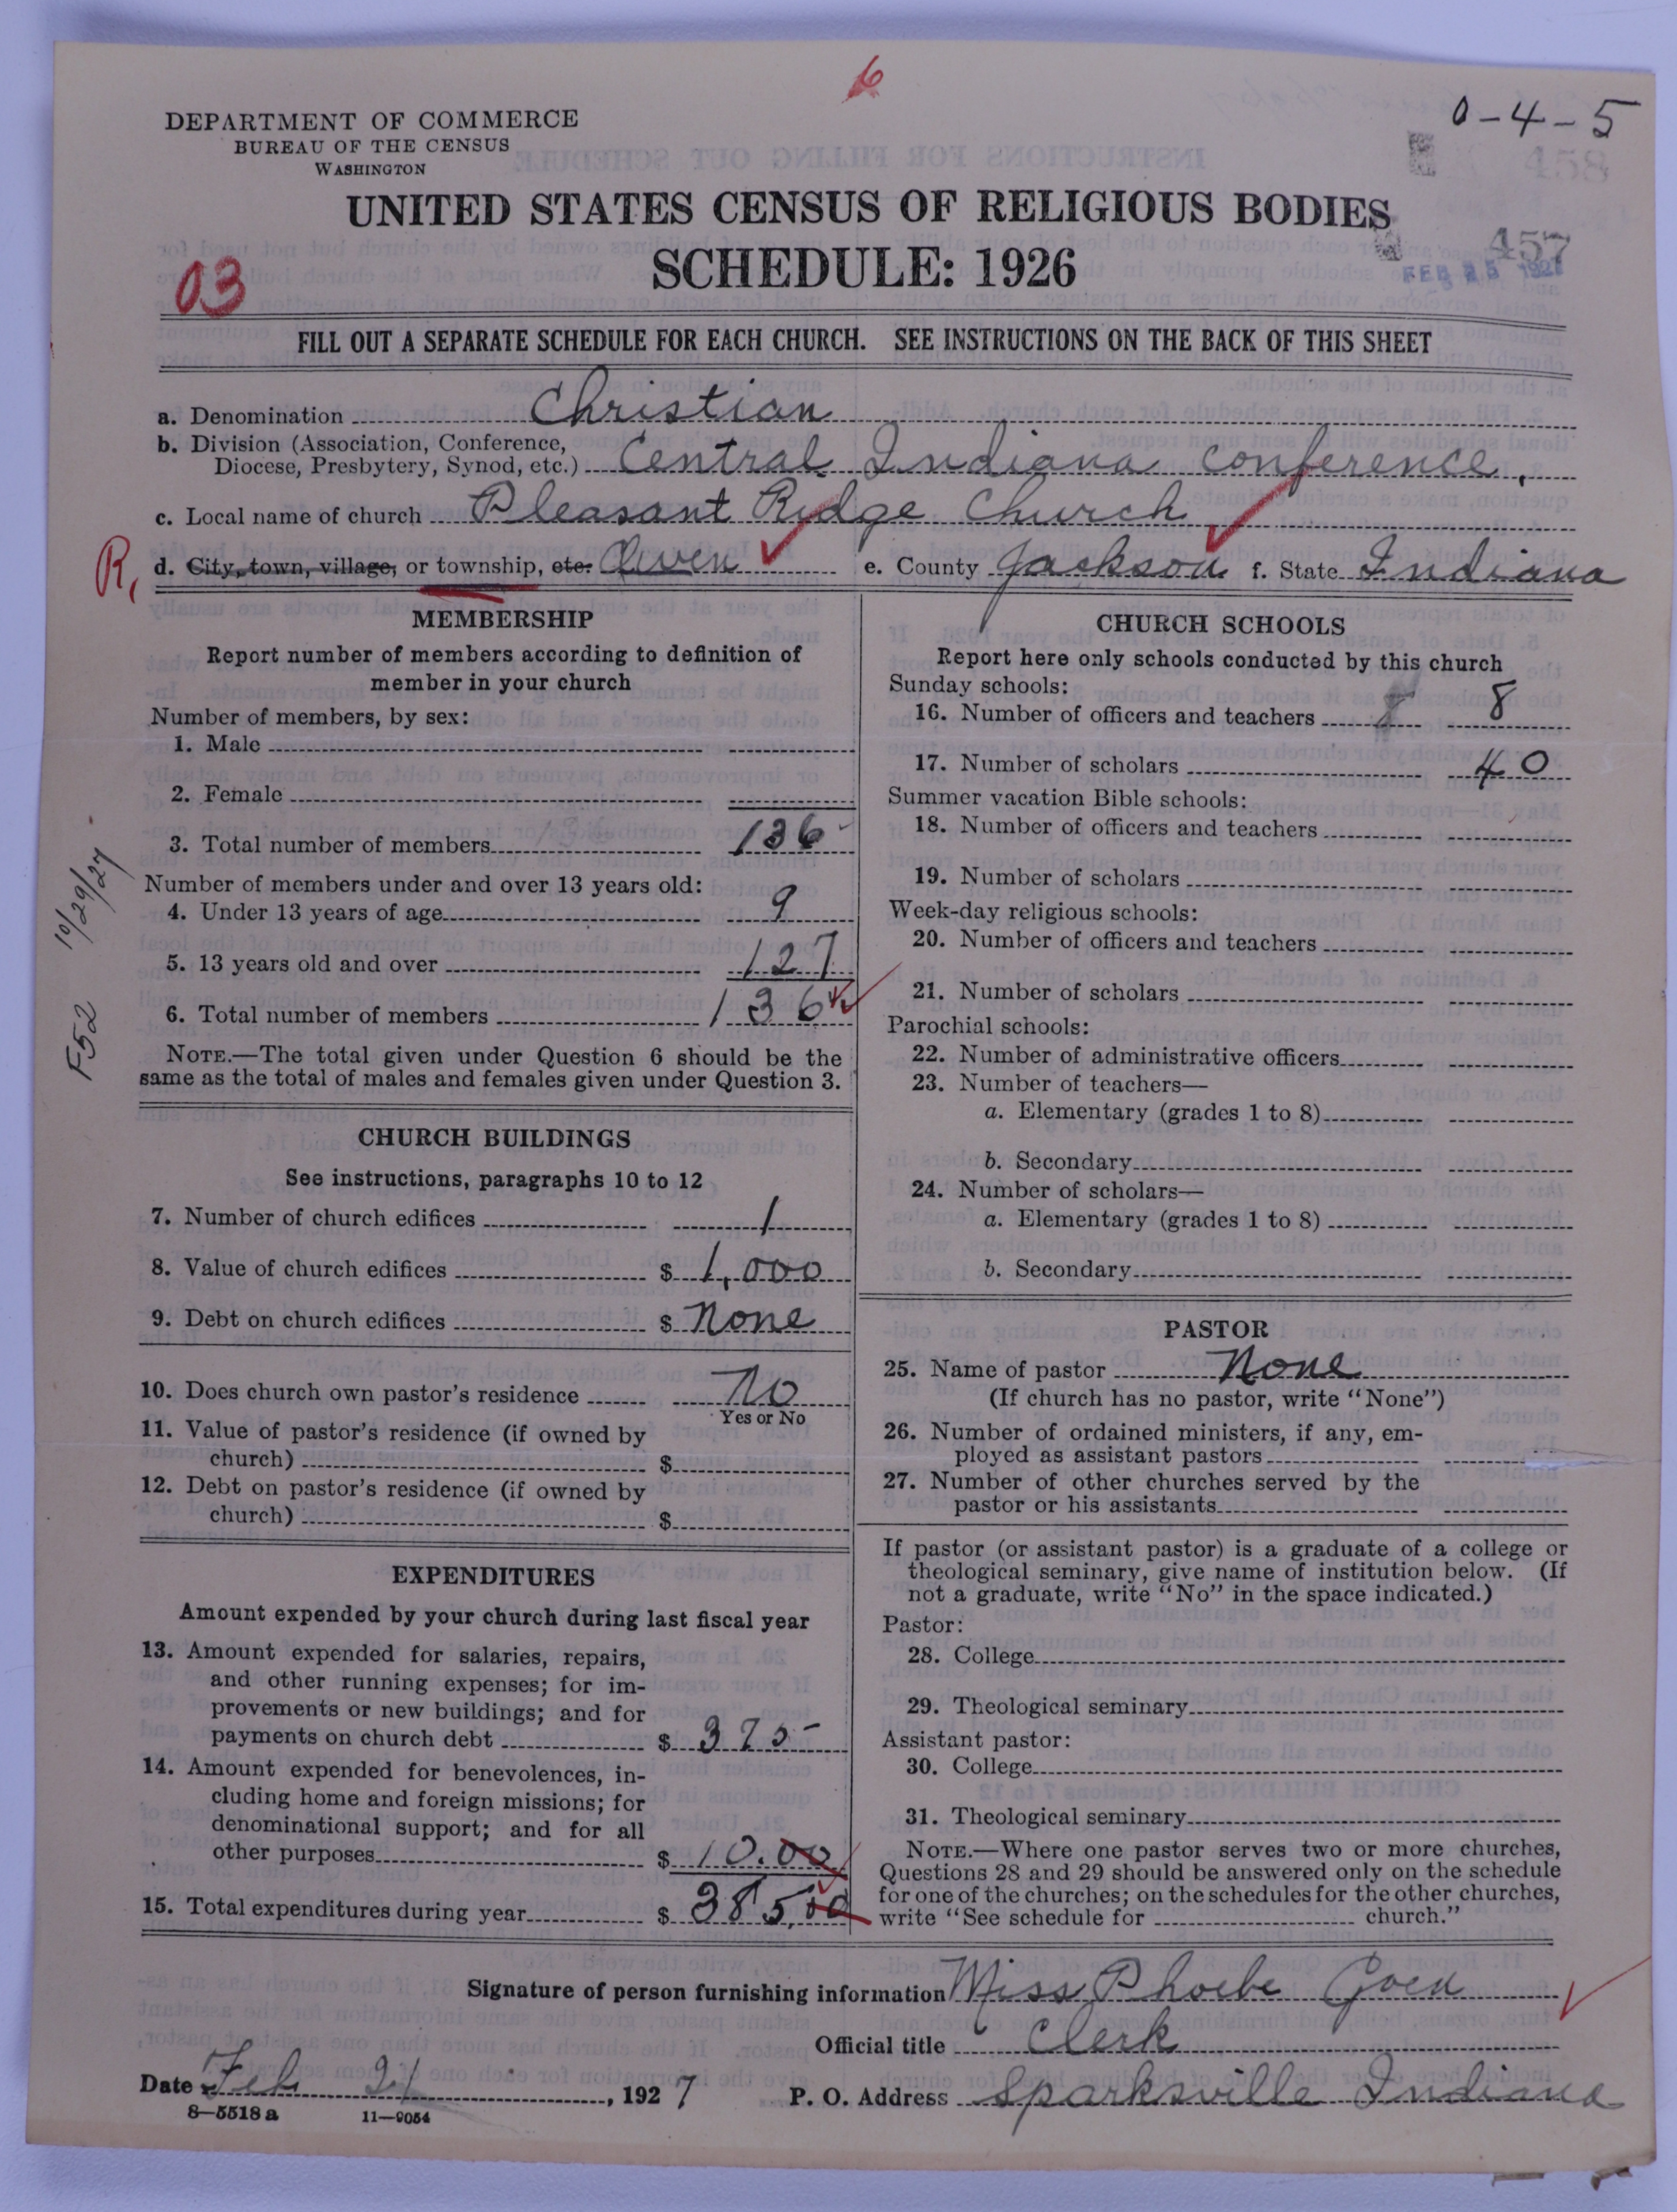 6
0-4-5
DEPARTMENT OF COMMERCE
BUREAU OF THE CENSUS
WASHINGTON
458
UNITED STATES CENSUS OF RELIGIOUS BODIES
SCHEDULE: 1926
457
FEB 25 1927
03
FILL OUT A SEPARATE SCHEDULE FOR EACH CHURCH. SEE INSTRUCTIONS ON THE BACK OF THIS SHEET
a. Denomination Christian
b. Division (Association, Conference,
Diocese, Presbytery, Synod, etc.) Central Indiana conference,
c. Local name of church Pleasant Ridge Church
R, d. City, town, village, or township, etc. Owen e. County Jackson f. State Indiana
MEMBERSHIP
Report number of members according to definition of
member in your church
Number of members, by sex:
1. Male
2. Female
3. Total number of members 136
Number of members under and over 13 years old:
4. Under 13 years of age 9
5. 13 years old and over 127
6. Total number of members 136
NOTE.—The total given under Question 6 should be the
same as the total of males and females given under Question 3.
10/29/27
F52
CHURCH BUILDINGS
See instructions, paragraphs 10 to 12
7. Number of church edifices 1
8. Value of church edifices $ 1,000
9. Debt on church edifices $ None
10. Does church own pastor's residence No
Yes or No
11. Value of pastor's residence (if owned by
church) $
12. Debt on pastor's residence (if owned by
church) $
EXPENDITURES
Amount expended by your church during last fiscal year
13. Amount expended for salaries, repairs,
and other running expenses; for im-
provements or new buildings; and for
payments on church debt $ 375-
14. Amount expended for benevolences, in-
cluding home and foreign missions; for
denominational support; and for all
other purposes $ 10.00
15. Total expenditures during year $ 385,00
CHURCH SCHOOLS
Report here only schools conducted by this church
Sunday schools:
16. Number of officers and teachers 8 8
17. Number of scholars 40
Summer vacation Bible schools:
18. Number of officers and teachers
19. Number of scholars
Week-day religious schools:
20. Number of officers and teachers
21. Number of scholars
Parochial schools:
22. Number of administrative officers
23. Number of teachers—
a. Elementary (grades 1 to 8)
b. Secondary
24. Number of scholars—
a. Elementary (grades 1 to 8)
b. Secondary
PASTOR
25. Name of pastor None
(If church has no pastor, write "None")
26. Number of ordained ministers, if any, em-
ployed as assistant pastors
27. Number of other churches served by the
pastor or his assistants
If pastor (or assistant pastor) is a graduate of a college or
theological seminary, give name of institution below. (If
not a graduate, write "No" in the space indicated.)
Pastor:
28. College
29. Theological seminary
Assistant pastor:
30. College
31. Theological seminary
NOTE.—Where one pastor serves two or more churches,
Questions 28 and 29 should be answered only on the schedule
for one of the churches; on the schedules for the other churches,
write "See schedule for church."
Signature of person furnishing information Miss Phoebe Goen
Official title Clerk
Date Feb 21, 1927 P. O. Address Sparksville Indiana
8—5518 a 11—9054